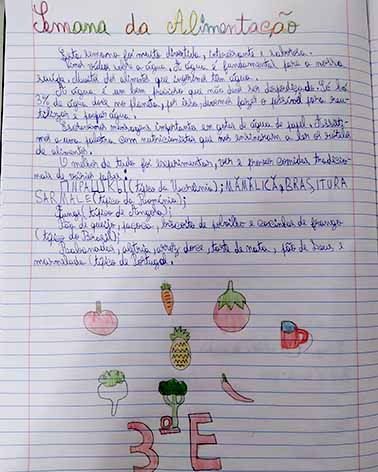 Semana da Alimentação
Esta semana foi muito divertida, interessante e
Um vídeo sobre a água. A água é fundamental para a nossa
saúde, dos alimentos que comemos têm água.
A água é um bem precioso que não deve ser desperdiçado. Só há
3% de água doce no planeta, por isso, devemos fazer o possível para reu-
tilizar e poupar água.
Escrevemos mensagens importantes em gotas de água de papel. Assisti-
mos a uma palestra com nutricionistas que nos ensinaram a ler os rótulos
de alimentos.
O melhor de tudo foi experimentar, ver e provar comidas tradicio-
nais de vários países:
(típico da Ucrânia); MĂMĂLICĂ, BRASITURA
SARMALE (típico da Roménia);
Funge (típico de Angola);
Pão de queijo, , biscoito de polvilho e coxinhas de frango
(típico do Brasil);
Rabanadas, aletria, arroz doce, tarte de nata, pão de Deus e
marmelada (típico de Portugal).
3º E